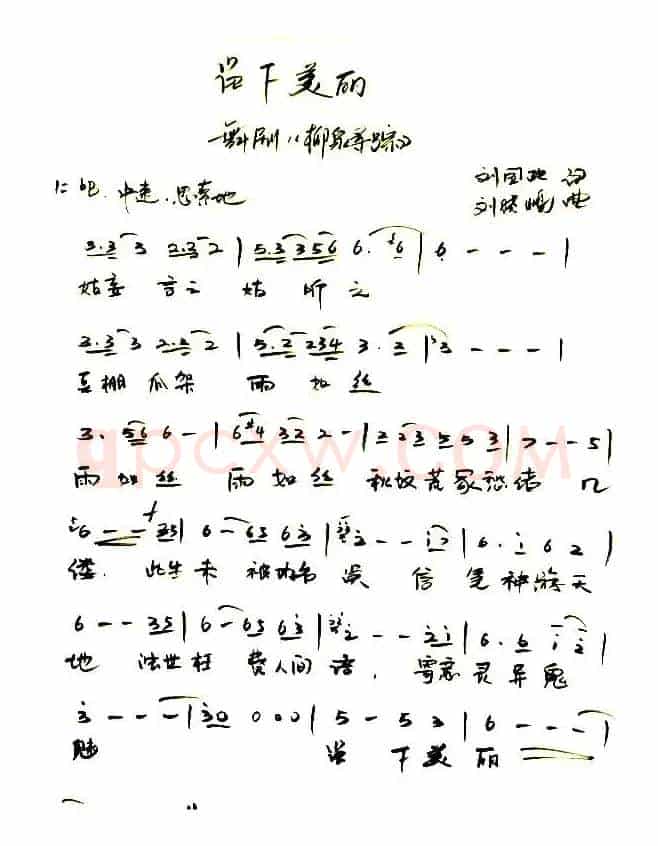 留下美丽
舞剧《柳泉寻踪》
1=bE 中速、思索地
刘国 词
刘晓 曲
3.3 3 2.3 2 | 5.3 3 5 6 6. 6 | 6 - - - |
姑妄言之姑听之
3.3 3 2.2 2 | 5.2 2 3 4 3. 2 | 3 - - - |
豆棚瓜架雨如丝
3. 5 6 6 - | 6 4 3 2 2 - | 2 2 3 5 5 3 | 7 - - 5 |
雨如丝雨如丝秋坟荒冢愁绪几
6 - - 3 5 | 6 - 6 5 6 3 | 2 - - 1 2 | 6. 1 6 2 |
缕.此生未被功名误信笔神游天
6 - - 3 5 | 6 - 6 5 6 3 | 2 - - 2 1 | 6. 6 1 2 |
地浊世枉费人间语,寄意灵异鬼
3 - - - | 3 0 0 0 0 | 5 - 5 3 | 6 - - - |
魅留下美丽
qpcxw.COM